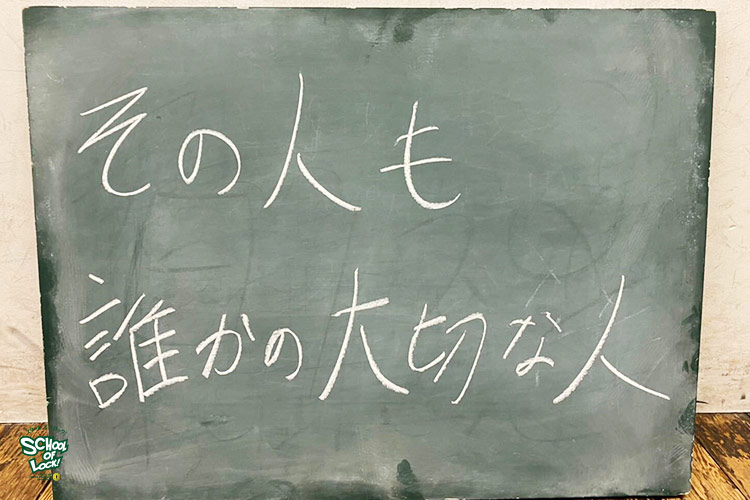 その人も
誰かの大切な人
SCHOOL
OF
LOCK!